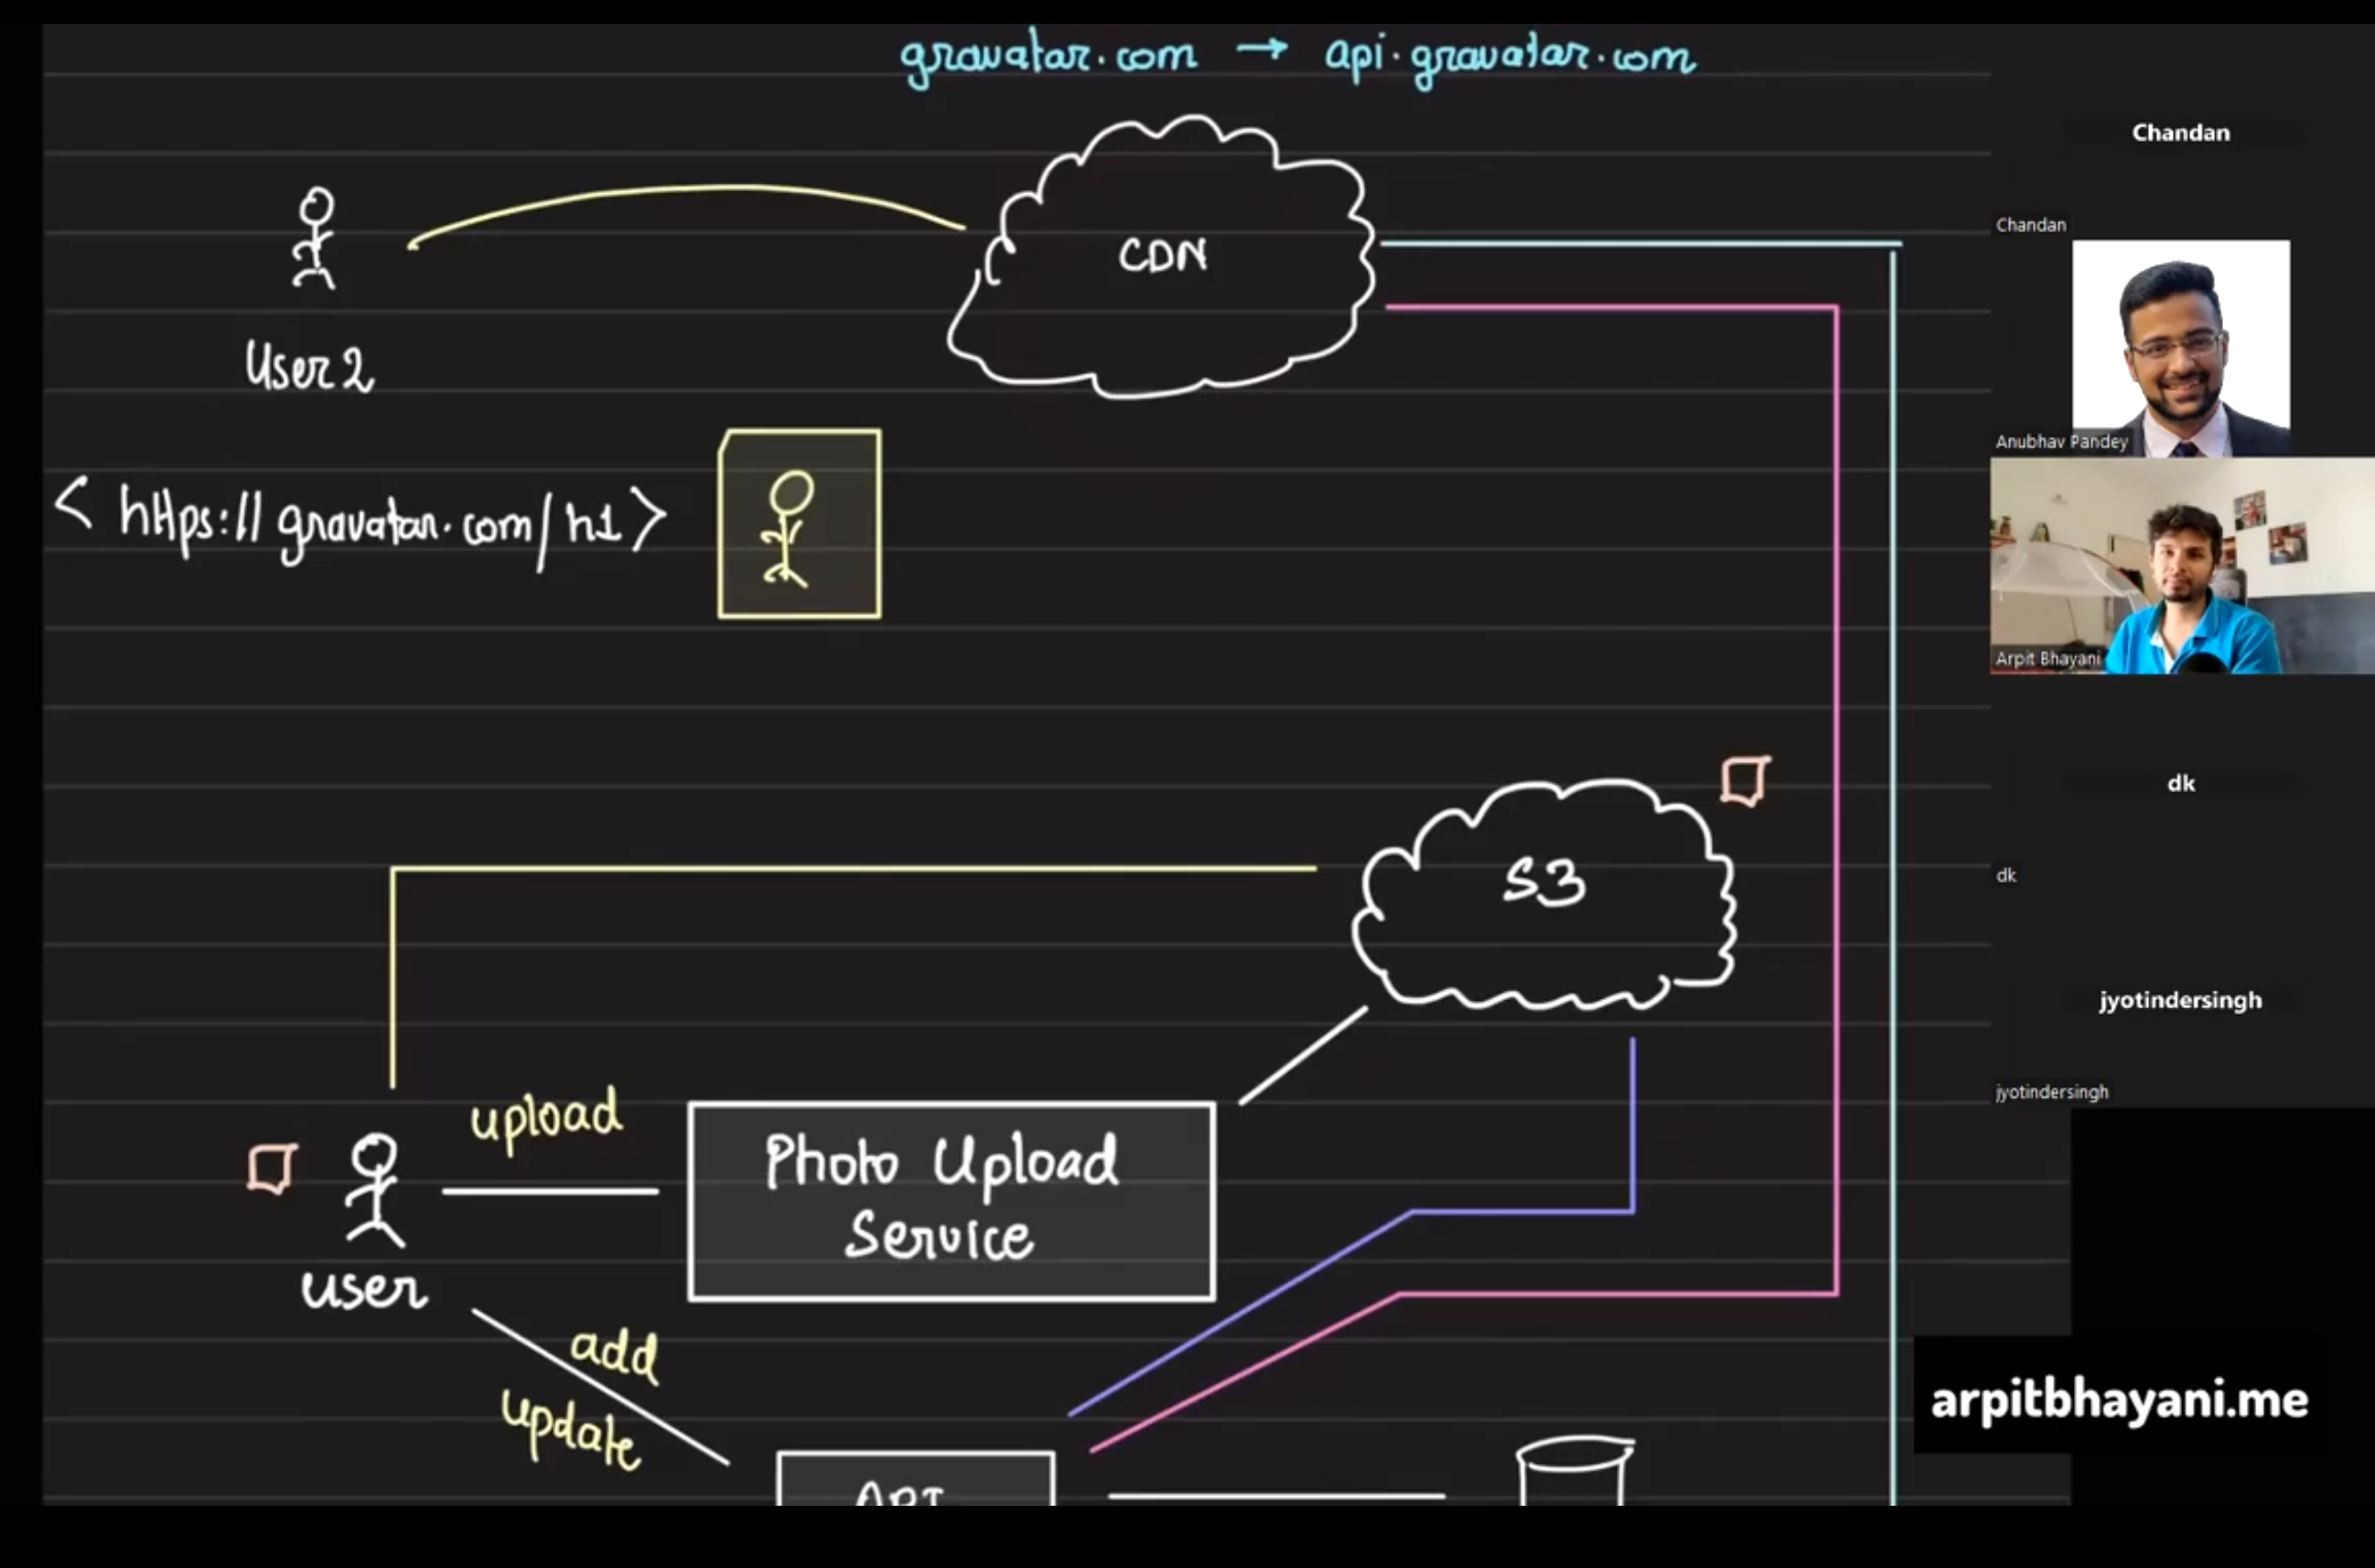 gravatar.com → api.gravatar.com
CDN
User 2
< https://gravatar.com/h1 >
S3
upload
Photo Upload
Service
user
add
update
API
Chandan
Chandan
Anubhav Pandey
Arpit Bhayani
dk
dk
jyotindersingh
jyotindersingh
arpitbhayani.me